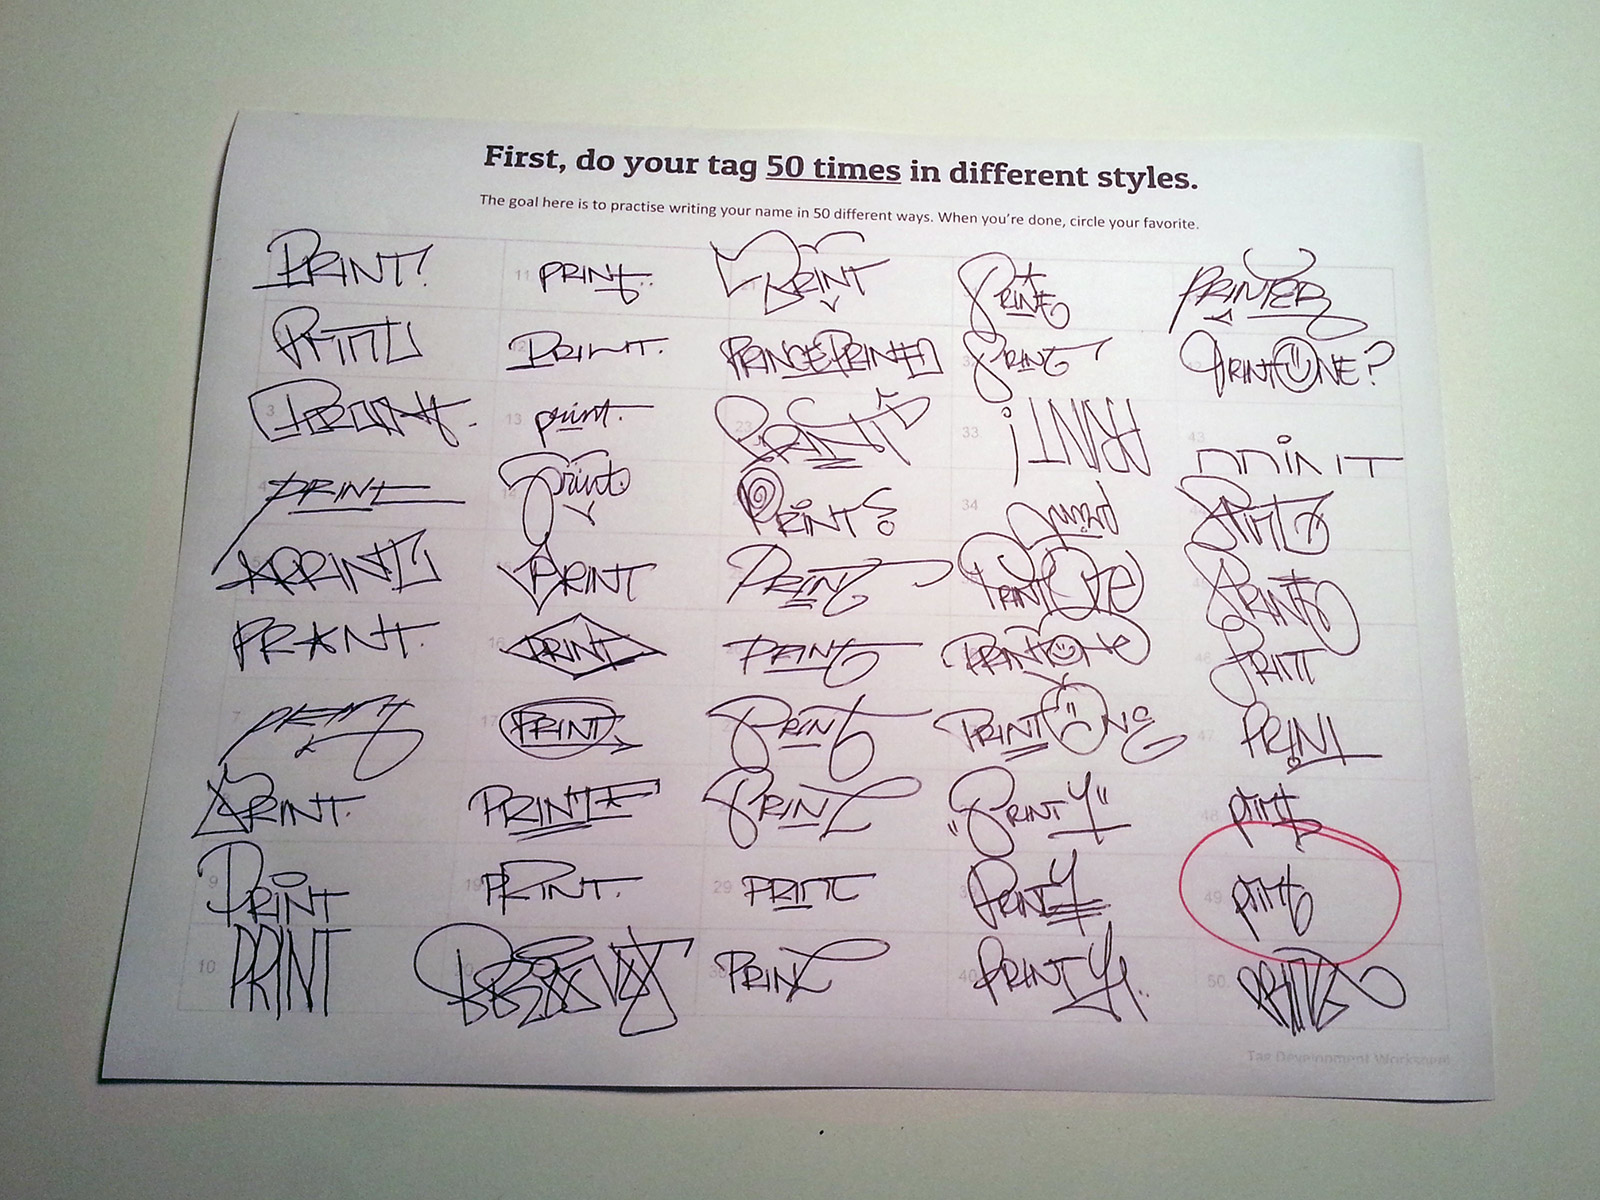 First, do your tag 50 times in different styles.
The goal here is to practise writing your name in 50 different ways. When you're done, circle your favorite.
PRINT!
PRINT
PRINT.
4 PRINT
PRINT
PR★NT.
7 PRINT
PRINT.
9 PRINT
10 PRINT
11 PRINT..
PRINT.
13 print.
14 Print.
PRINT
16 PRINT
17 PRINT
PRINT
19 PRINT.
PRINT
PRINT
PRINCEPRINT
23 PRINT
PRINT
PRINT
PRINT
PRINT
PRINT
29 PRINT
30 PRINT
PRINT
PRINT
33 PRINT!
34 Print
PRINTONE
PRINTONE
PRINTONE
"PRINTY"
PRINTY
40 PRINTY..
PRINTER
PRINTONE?
43 PRINT
PRINT
PRINT
46 PRINT
47 PRINT
48 print
49 print
50. PRINT
Tag Development Worksheet